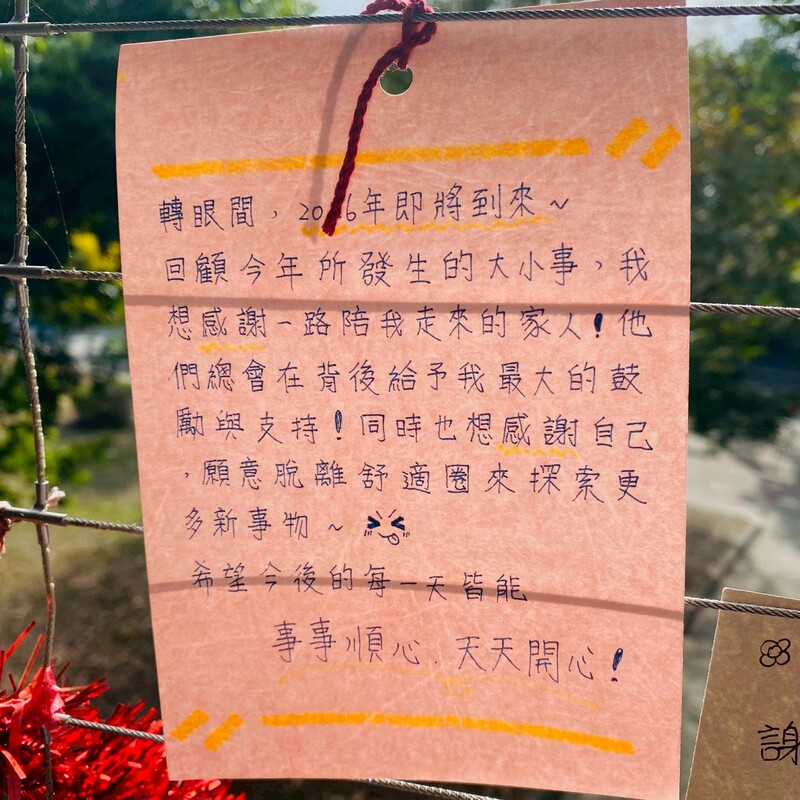 轉眼間，2026年即將到來~
回顧今年所發生的大小事，我
想感謝一路陪我走來的家人！他
們總會在背後給予我最大的鼓
勵與支持！同時也想感謝自己
，願意脫離舒適圈來探索更
多新事物~
希望今後的每一天皆能
事事順心．天天開心！
謝